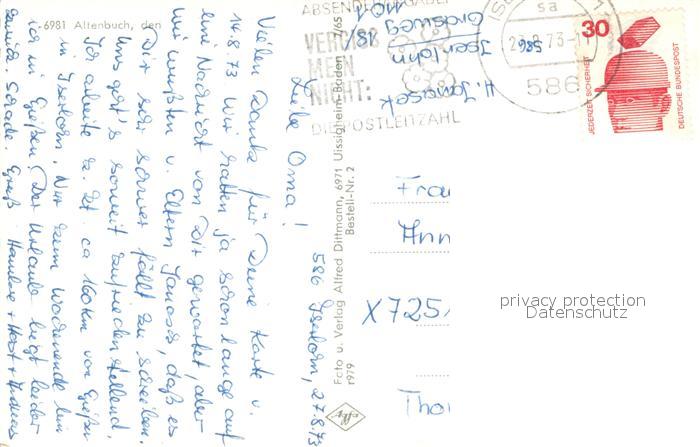 6981 Altenbuch, den
586 Iserlohn, 27.8.73
Liebe Oma!
Vielen Danke für Deine Karte v.
14.8.73 Wir hatten ja schon lange auf
eine Nachricht von Dir gewartet, aber
wir wußten v. Eltern Janosch, daß es
Dir sehr schwer fällt zu schreiben.
Uns geht's soweit zufriedenstellend.
Ich arbeite z. Zt ca 160 km von Gießen
in Iserlohn. Nur zum Wochenende bin
ich in Gießen. Der Urlaub liegt leider
zurück. Schade. Gruß Hannelore + Horst + Andreas
Foto u. Verlag Alfred Dittmann, 6971 Uissigheim-Baden
Bestell-Nr. 2
r979
7765
effy
ABSENDERANGABE!
VERGISS
MEIN
NICHT:
DIE POSTLEITZAHL
H.
586 Iserlohn
1
sa
73
586
30
JEDERZEIT SICHERHEIT
DEUTSCHE BUNDESPOST
Frau
Ann
X 725
Tho
privacy protection
Datenschutz